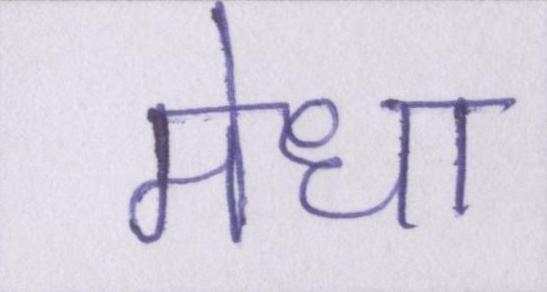 मेधा